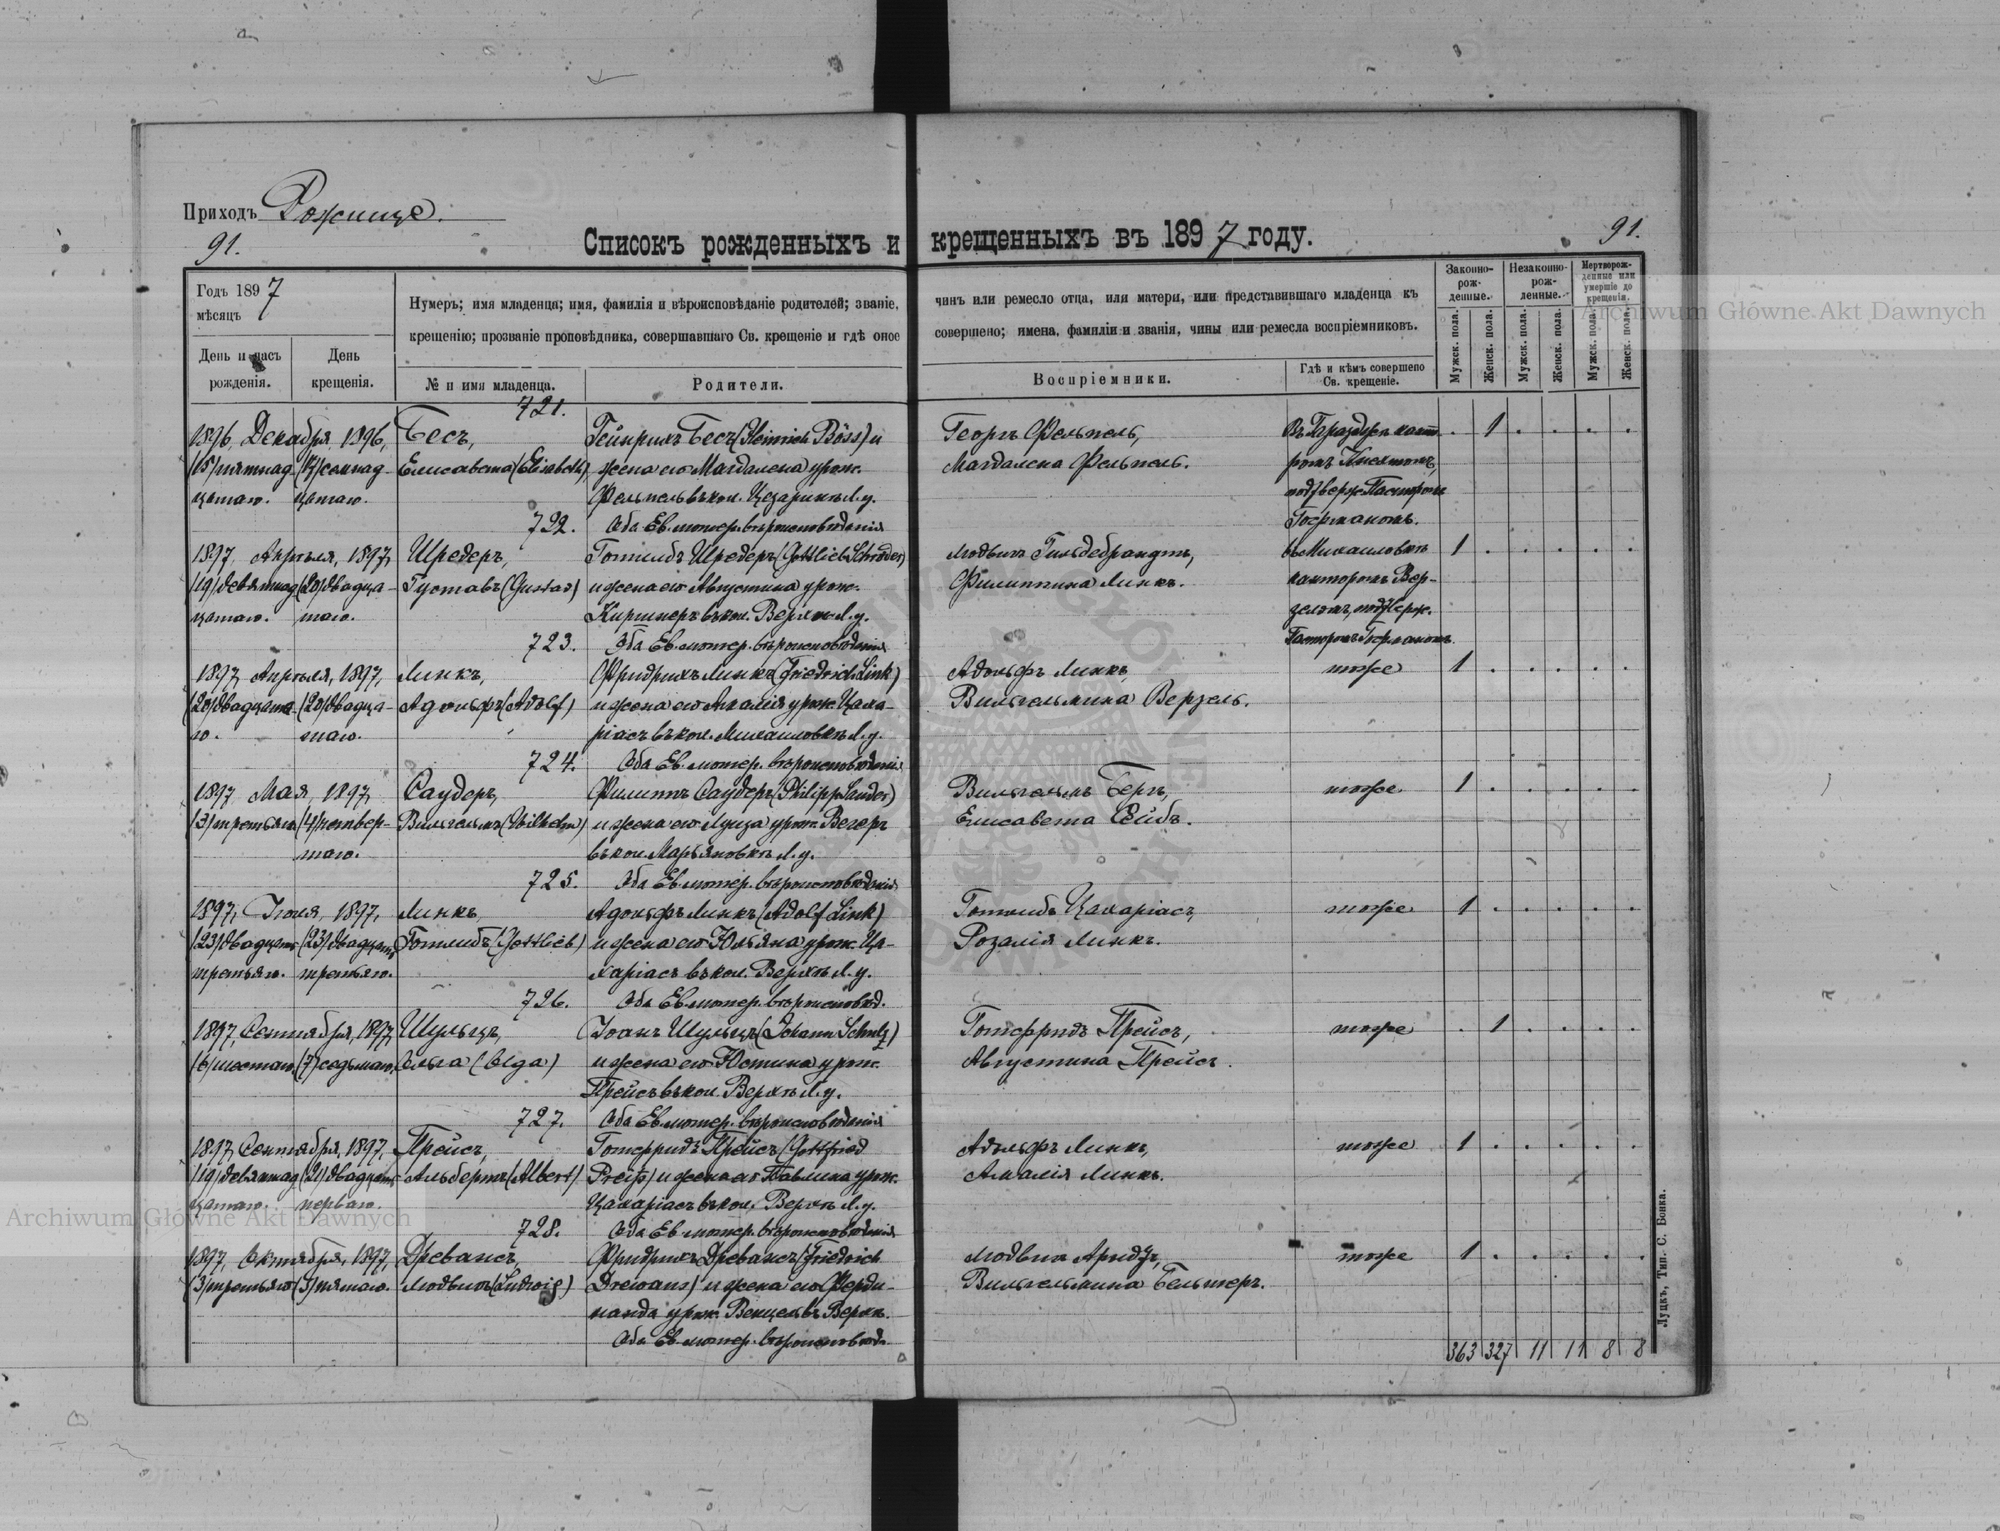 Приходъ Рожище.
91.
91.
Списокъ рожденныхъ и крещенныхъ въ 1897 году.
Годъ 1897
мѣсяцъ
День и часъ рожденія.
День крещенія.
Нумеръ; имя младенца; имя, фамилія и вѣроисповѣданіе родителей; званіе, чинъ или ремесло отца, или матери, или представившаго младенца къ
крещенію; прозваніе проповѣдника, совершавшаго Св. крещеніе и гдѣ оное совершено; имена, фамиліи и званія, чины или ремесла воспріемниковъ.
№ и имя младенца.
Родители.
Воспріемники.
Гдѣ и кѣмъ совершено Св. крещеніе.
Законно-рож-денные.
Незаконно-рож-денные.
Мертворож-денные или умершіе до крещенія.
Мужск. пола.
Женск. пола.
Мужск. пола.
Женск. пола.
Мужск. пола.
Женск. пола.
721.
1896, Декабря, 1896, Бесъ, Гейнрихъ Бесъ (Heinrich Böss) и Георгъ Фельпель, 1
(15) пятнад Елисавета (Elisabeth), жена его Магдалена урож. Магдалена Фельпель.
цатаго. цатаго. Фельпель въ кол. Цезаринъ Л. у. подтверж. Пасторомъ
722. Оба Ев. лютер. вѣроисповѣданія
1897, Апрѣля, 1897, Шредеръ, Готлибъ Шредеръ (Gottlieb Schröder) Людвигъ Гильдебрандтъ, въ Михаиловкѣ 1
(19) девятнад (20) двадца- Густавъ (Gustav) и жена его Августина урож. Филиппина Линкъ. канторомъ Вер-
цатаго. таго. Киршнеръ въ кол. Верхи Л. у. целемъ, подтверж.
723. Оба Ев. лютер. вѣроисповѣданія
1897, Апрѣля, 1897, Линкъ, Фридрихъ Линкъ (Friedrich Link) Адольфъ Линкъ, тоже 1
(20) двадцата (20) двадца- Адольфъ (Adolf) и жена его Амалія урож. Цаха- Вильгельмина Верцель.
го. таго. ріасъ въ кол. Михаиловкѣ Л. у.
724. Оба Ев. лютер. вѣроисповѣданія
1897, Мая, 1897, Саудеръ, Филиппъ Саудеръ (Philipp Sauder) Вильгельмъ Бергъ, тоже 1
(3) третьяго (4) четвер- Вильгельмъ (Wilhelm) и жена его Луиза урож. Вегеръ Елисавета Сейбъ.
таго. въ кол. Марьяновкѣ Л. у.
725. Оба Ев. лютер. вѣроисповѣданія
1897, Іюня, 1897, Линкъ, Адольфъ Линкъ (Adolf Link) Готлибъ Цахаріасъ, тоже 1
(23) двадцать (23) двадцать Готлибъ (Gottlieb) и жена его Юльяна урож. Ца- Розалія Линкъ.
третьяго. третьяго. харіасъ въ кол. Верхи Л. у.
726. Оба Ев. лютер. вѣроисповѣд.
1897, Сентября, 1897, Шульцъ, Іоанъ Шульцъ (Johann Schulz) Готфридъ Прейсъ, тоже 1
(6) шестаго (7) седьмаго Ольга (Olga) и жена его Юстина урож. Августина Прейсъ.
Прейсъ въ кол. Верхи Л. у.
727. Оба Ев. лютер. вѣроисповѣданія
1897, Сентября, 1897, Прейсъ, Готфридъ Прейсъ (Gottfried Адольфъ Линкъ, тоже 1
(19) девятнад (21) двадцать Альбертъ (Albert) Preiß) и жена его Павлина урож. Амалія Линкъ.
цатаго. перваго. Цахаріасъ въ кол. Верхи Л. у.
728. Оба Ев. лютер. вѣроисповѣданія
1897, Октября, 1897, Древансъ, Фридрихъ Древансъ (Friedrich Людвигъ Арндтъ, тоже 1
(3) третьяго (5) пятаго. Людвигъ (Ludwig) Drewans) и жена его Ферди- Вильгельмина Бельтеръ.
нанда урож. Венцель въ Верхи.
Оба Ев. лютер. вѣроисповѣд.
363 327 11 11 8 8
Луцкъ, Тип. С. Бонка.
Archiwum Główne Akt Dawnych
Archiwum Główne Akt Dawnych